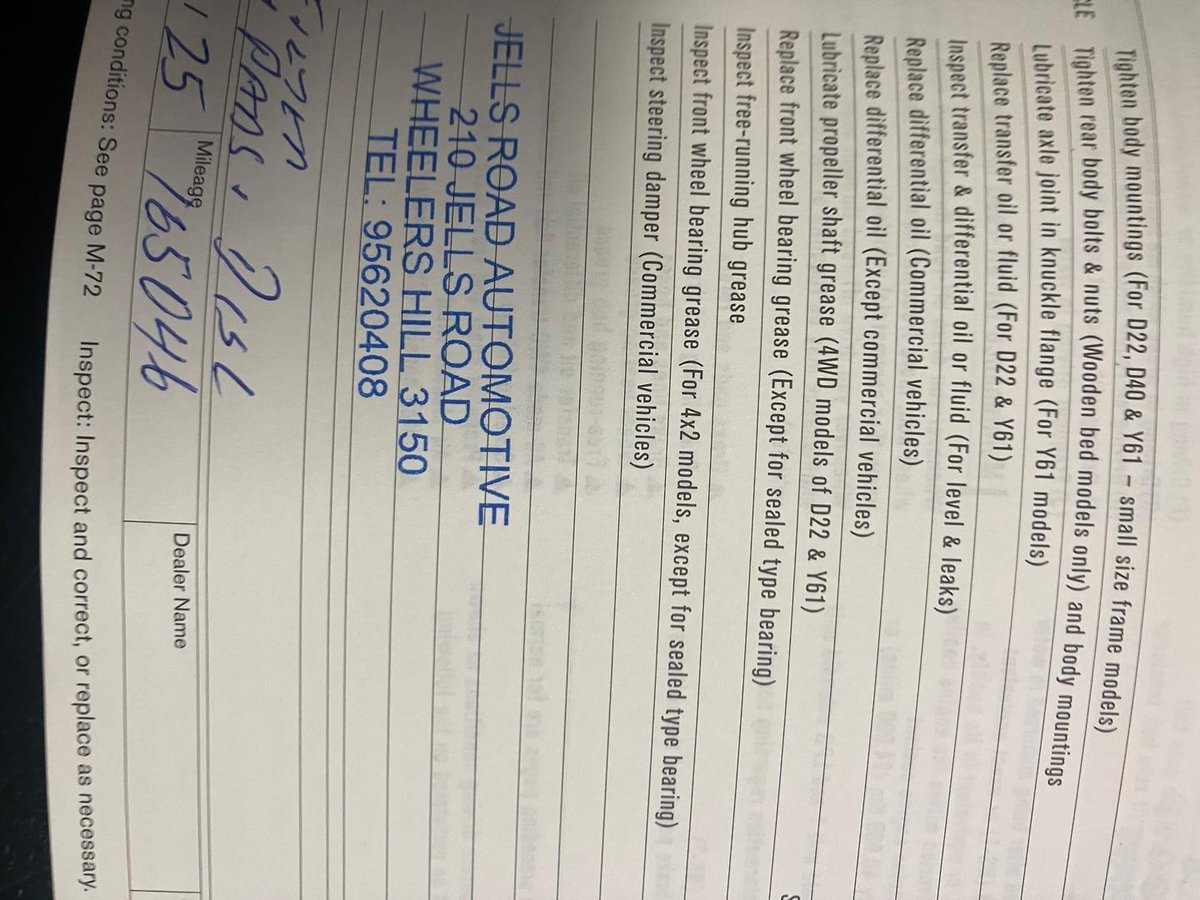 CLE
Tighten body mountings (For D22, D40 & Y61 – small size frame models)
Tighten rear body bolts & nuts (Wooden bed models only) and body mountings
Lubricate axle joint in knuckle flange (For Y61 models)
Replace transfer oil or fluid (For D22 & Y61)
Inspect transfer & differential oil or fluid (For level & leaks)
Replace differential oil (Commercial vehicles)
Replace differential oil (Except commercial vehicles)
Lubricate propeller shaft grease (4WD models of D22 & Y61)
Replace front wheel bearing grease (Except for sealed type bearing)
Inspect free-running hub grease
Inspect front wheel bearing grease (For 4x2 models, except for sealed type bearing)
Inspect steering damper (Commercial vehicles)
JELLS ROAD AUTOMOTIVE
210 JELLS ROAD
WHEELERS HILL 3150
TEL: 95620408
PADS, DISC
/ 25 Mileage 165046 Dealer Name
ng conditions: See page M-72 Inspect: Inspect and correct, or replace as necessary.